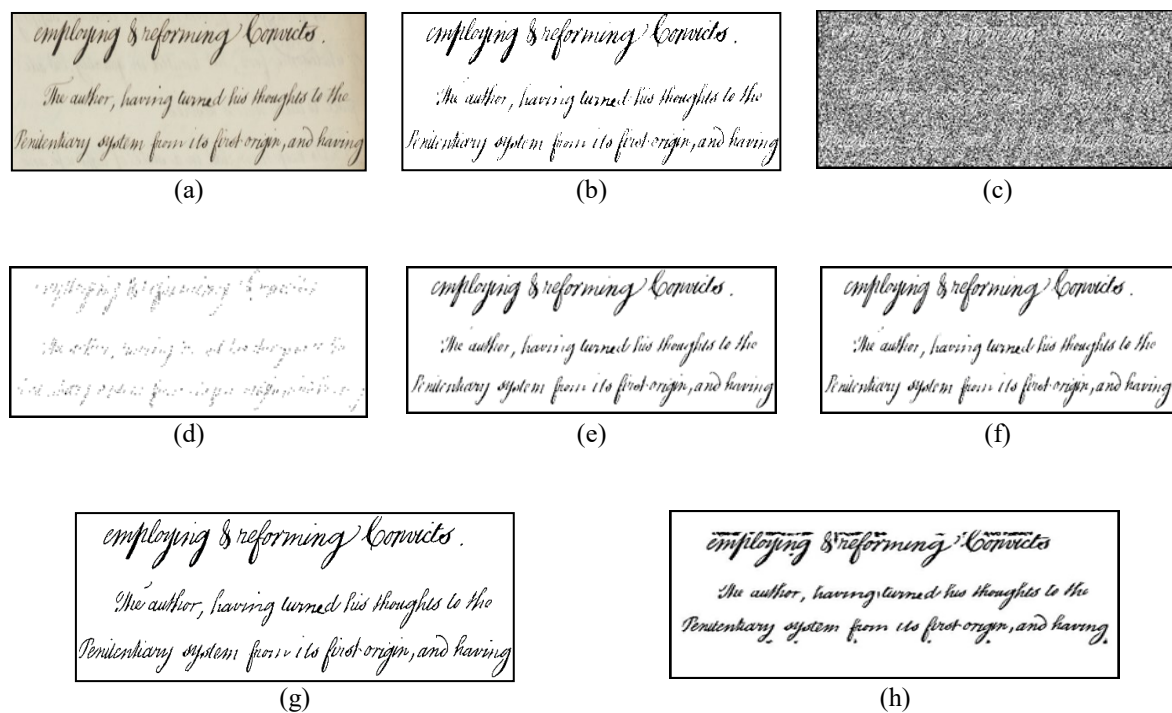 employing & reforming Convicts.
The author, having turned his thoughts to the
Penitentiary system from its first origin, and having
(a)
employing & reforming Convicts.
The author, having turned his thoughts to the
Penitentiary system from its first origin, and having
(b)
(c)
(d)
employing & reforming Convicts.
The author, having turned his thoughts to the
Penitentiary system from its first origin, and having
(e)
employing & reforming Convicts.
The author, having turned his thoughts to the
Penitentiary system from its first origin, and having
(f)
employing & reforming Convicts.
The author, having turned his thoughts to the
Penitentiary system from its first origin, and having
(g)
employing & reforming Convicts
The author, having turned his thoughts to the
Penitentiary system from its first origin, and having
(h)